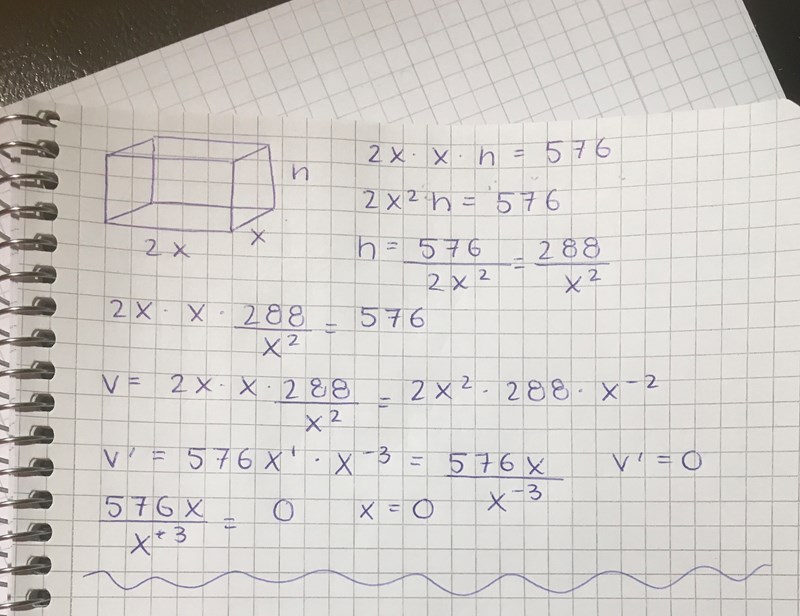 h
2x
x
2x · x · h = 576
2x² · h = 576
h = 576/2x² = 288/x²
2x · x · 288/x² = 576
V = 2x · x · 288/x² = 2x² · 288 · x⁻²
V' = 576x¹ · x⁻³ = 576x/x⁻³ V' = 0
576x/x⁺³ = 0 x = 0